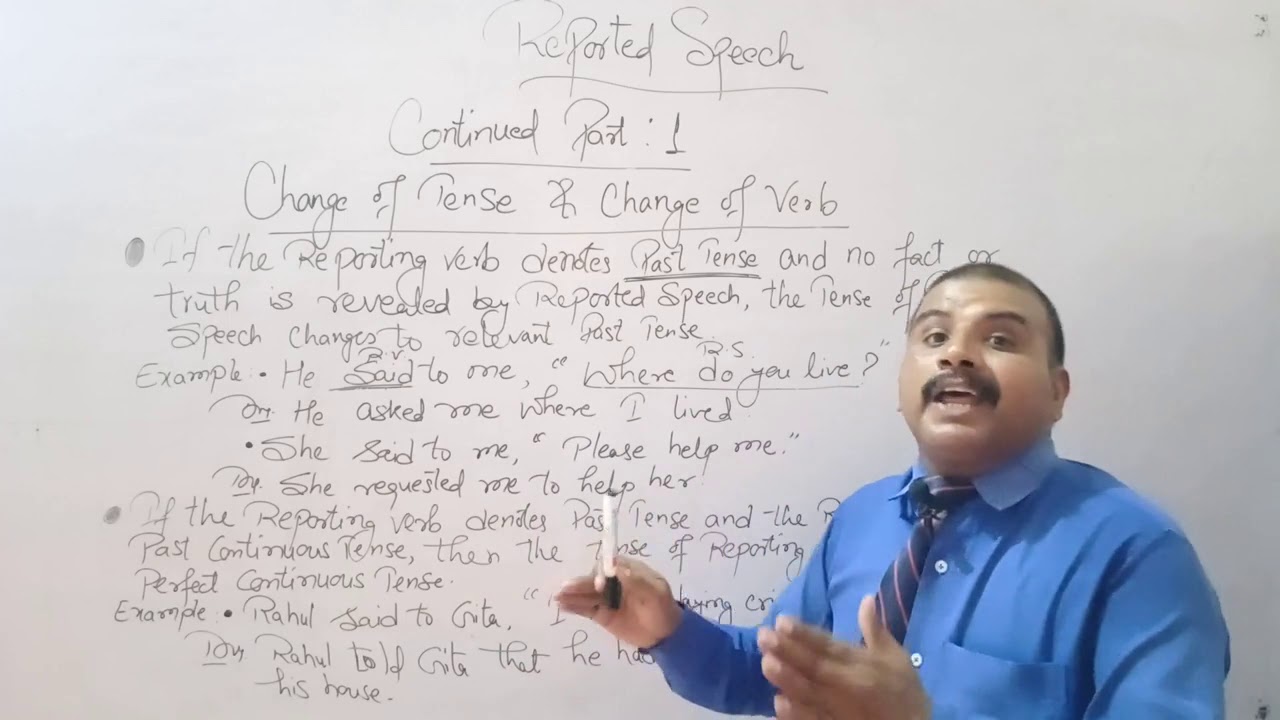 Reported Speech
Continued Part : 1
Change of Tense & Change of Verb
• If the Reporting verb denotes Past Tense and no fact or
truth is revealed by Reported Speech, the Tense of
Speech changes to relevant Past Tense.
R.V R.S.
Example • He Said to me, "Where do you live?"
He asked me where I lived.
• She said to me, "Please help me."
She requested me to help her.
• If the Reporting verb denotes Past Tense and the
Past Continuous Tense, then the Tense of Reporting
Perfect Continuous Tense.
Example • Rahul said to Gita, "I
Rahul told Gita that he
his house.